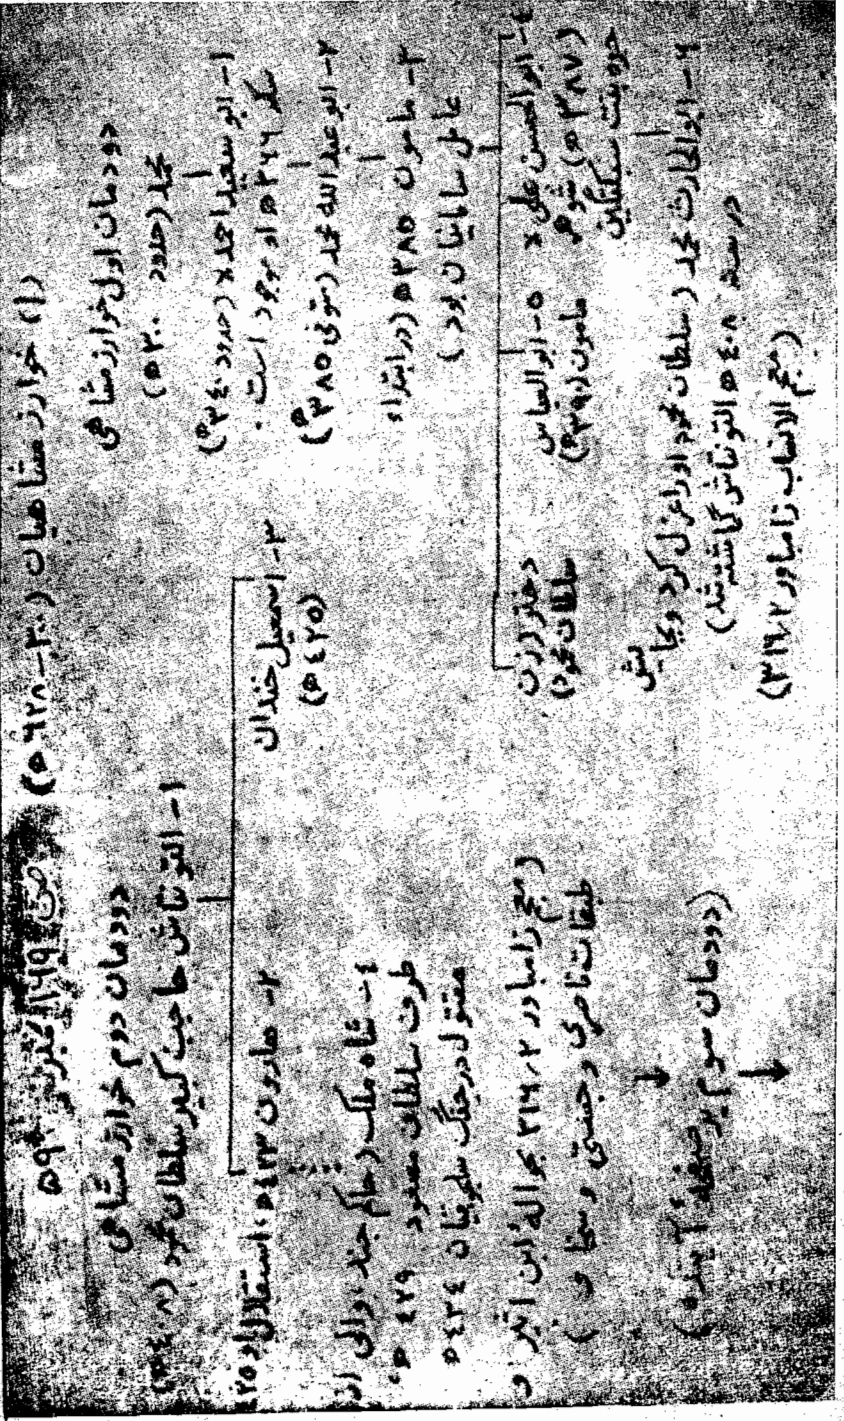 (۱) خوارزمشاهیان (۳۰۰-۶۲۸ ه)
دودمان اول خوارزمشاهی
محمد (حدود ۳۰۰ ه)
۱- ابو سعید احمد لا (حدود ۳۴۰ ه)
سکه ۳۶۶ ه او موجود است.
۲- ابو عبدالله محمد (متوفی ۳۸۵ ه)
۳- مامون ۳۸۵ ه (در ابتداء
عامل سامانیان بود)
۴- ابوالحسن علی لا
(۳۸۷ ه) شوهر
حره بنت سبکتگین
۵- ابوالعباس
مامون (۳۹۰ ه)
دختر (زن
سلطان محمود)
۶- ابوالحارث محمد (سلطان محمود او را عزل کرد و بجا یش
در سنه ۴۰۸ ه التونتاش گماشته شد)
(معجم الانساب زامباور ۲/۳۱۶)
دودمان دوم خوارزمشاهی
۱- التونتاش حاجب کبیر سلطان محمود (۴۰۸ ه)
۲- هارون ۴۲۳ ه، استقلال او ۴۲۵
۳- اسمعیل خندان
(۴۲۵ ه)
۴- شاه ملک (حاکم جند، والی از
طرف سلطان مسعود ۴۲۹ ه،
مقتول در جنگ سلجوقیان ۴۳۴ ه
(معجم زامباور ۲/۳۱۶ بحوالهٔ ابن اثیر و
طبقات ناصری و جهتی و سخاو.)
(دودمان سوم بر صفحهٔ آینده)